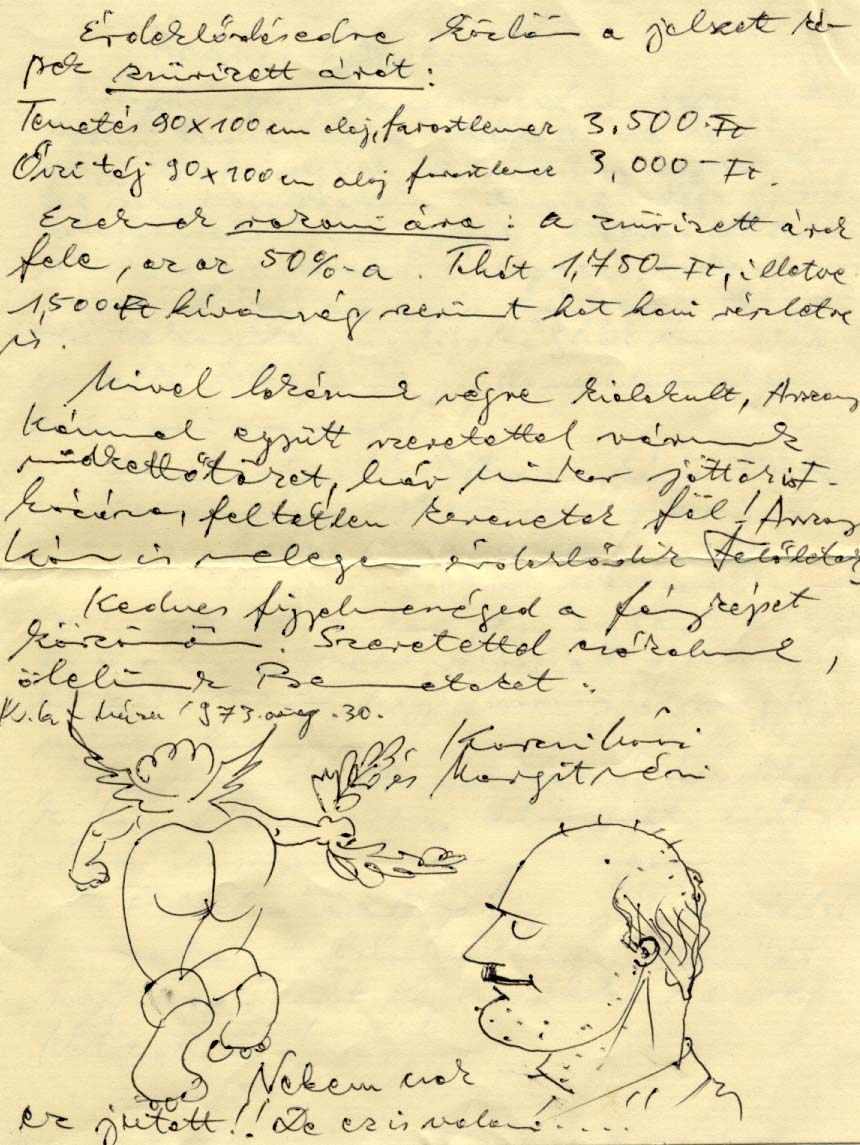 Érdeklődésedre közlöm a jelzett ké-
pek zsűrizett árát:
Temetés 90x100 cm olaj, farostlemez 3.500.-Ft
Őrzi táj 90x100 cm olaj farostlemez 3,000-Ft.
Ezeknek rokoni ára: a zsűrizett árak
fele, az az 50%-a. Tehát 1,750-Ft, illetve
1,500Ft kívánság szerint hat havi részletre
is.
Mivel lakásunk végre kialakult, Asszony
kámmal együtt szeretettel várunk
mindkettőtöket, bár mikor jöttök is I-
, feltétlen keressetek föl! Asszony
kám is melegen érdeklődik Felőletek
Kedves figyelmességed a fényképet
köszönöm. Szeretettel csókolunk,
ölelünk Benneteket.
K. 1973. aug. 30.
Karcsi bácsi
és Margit néni
Nekem csak
ez jutott!! De ez is valami.....!!